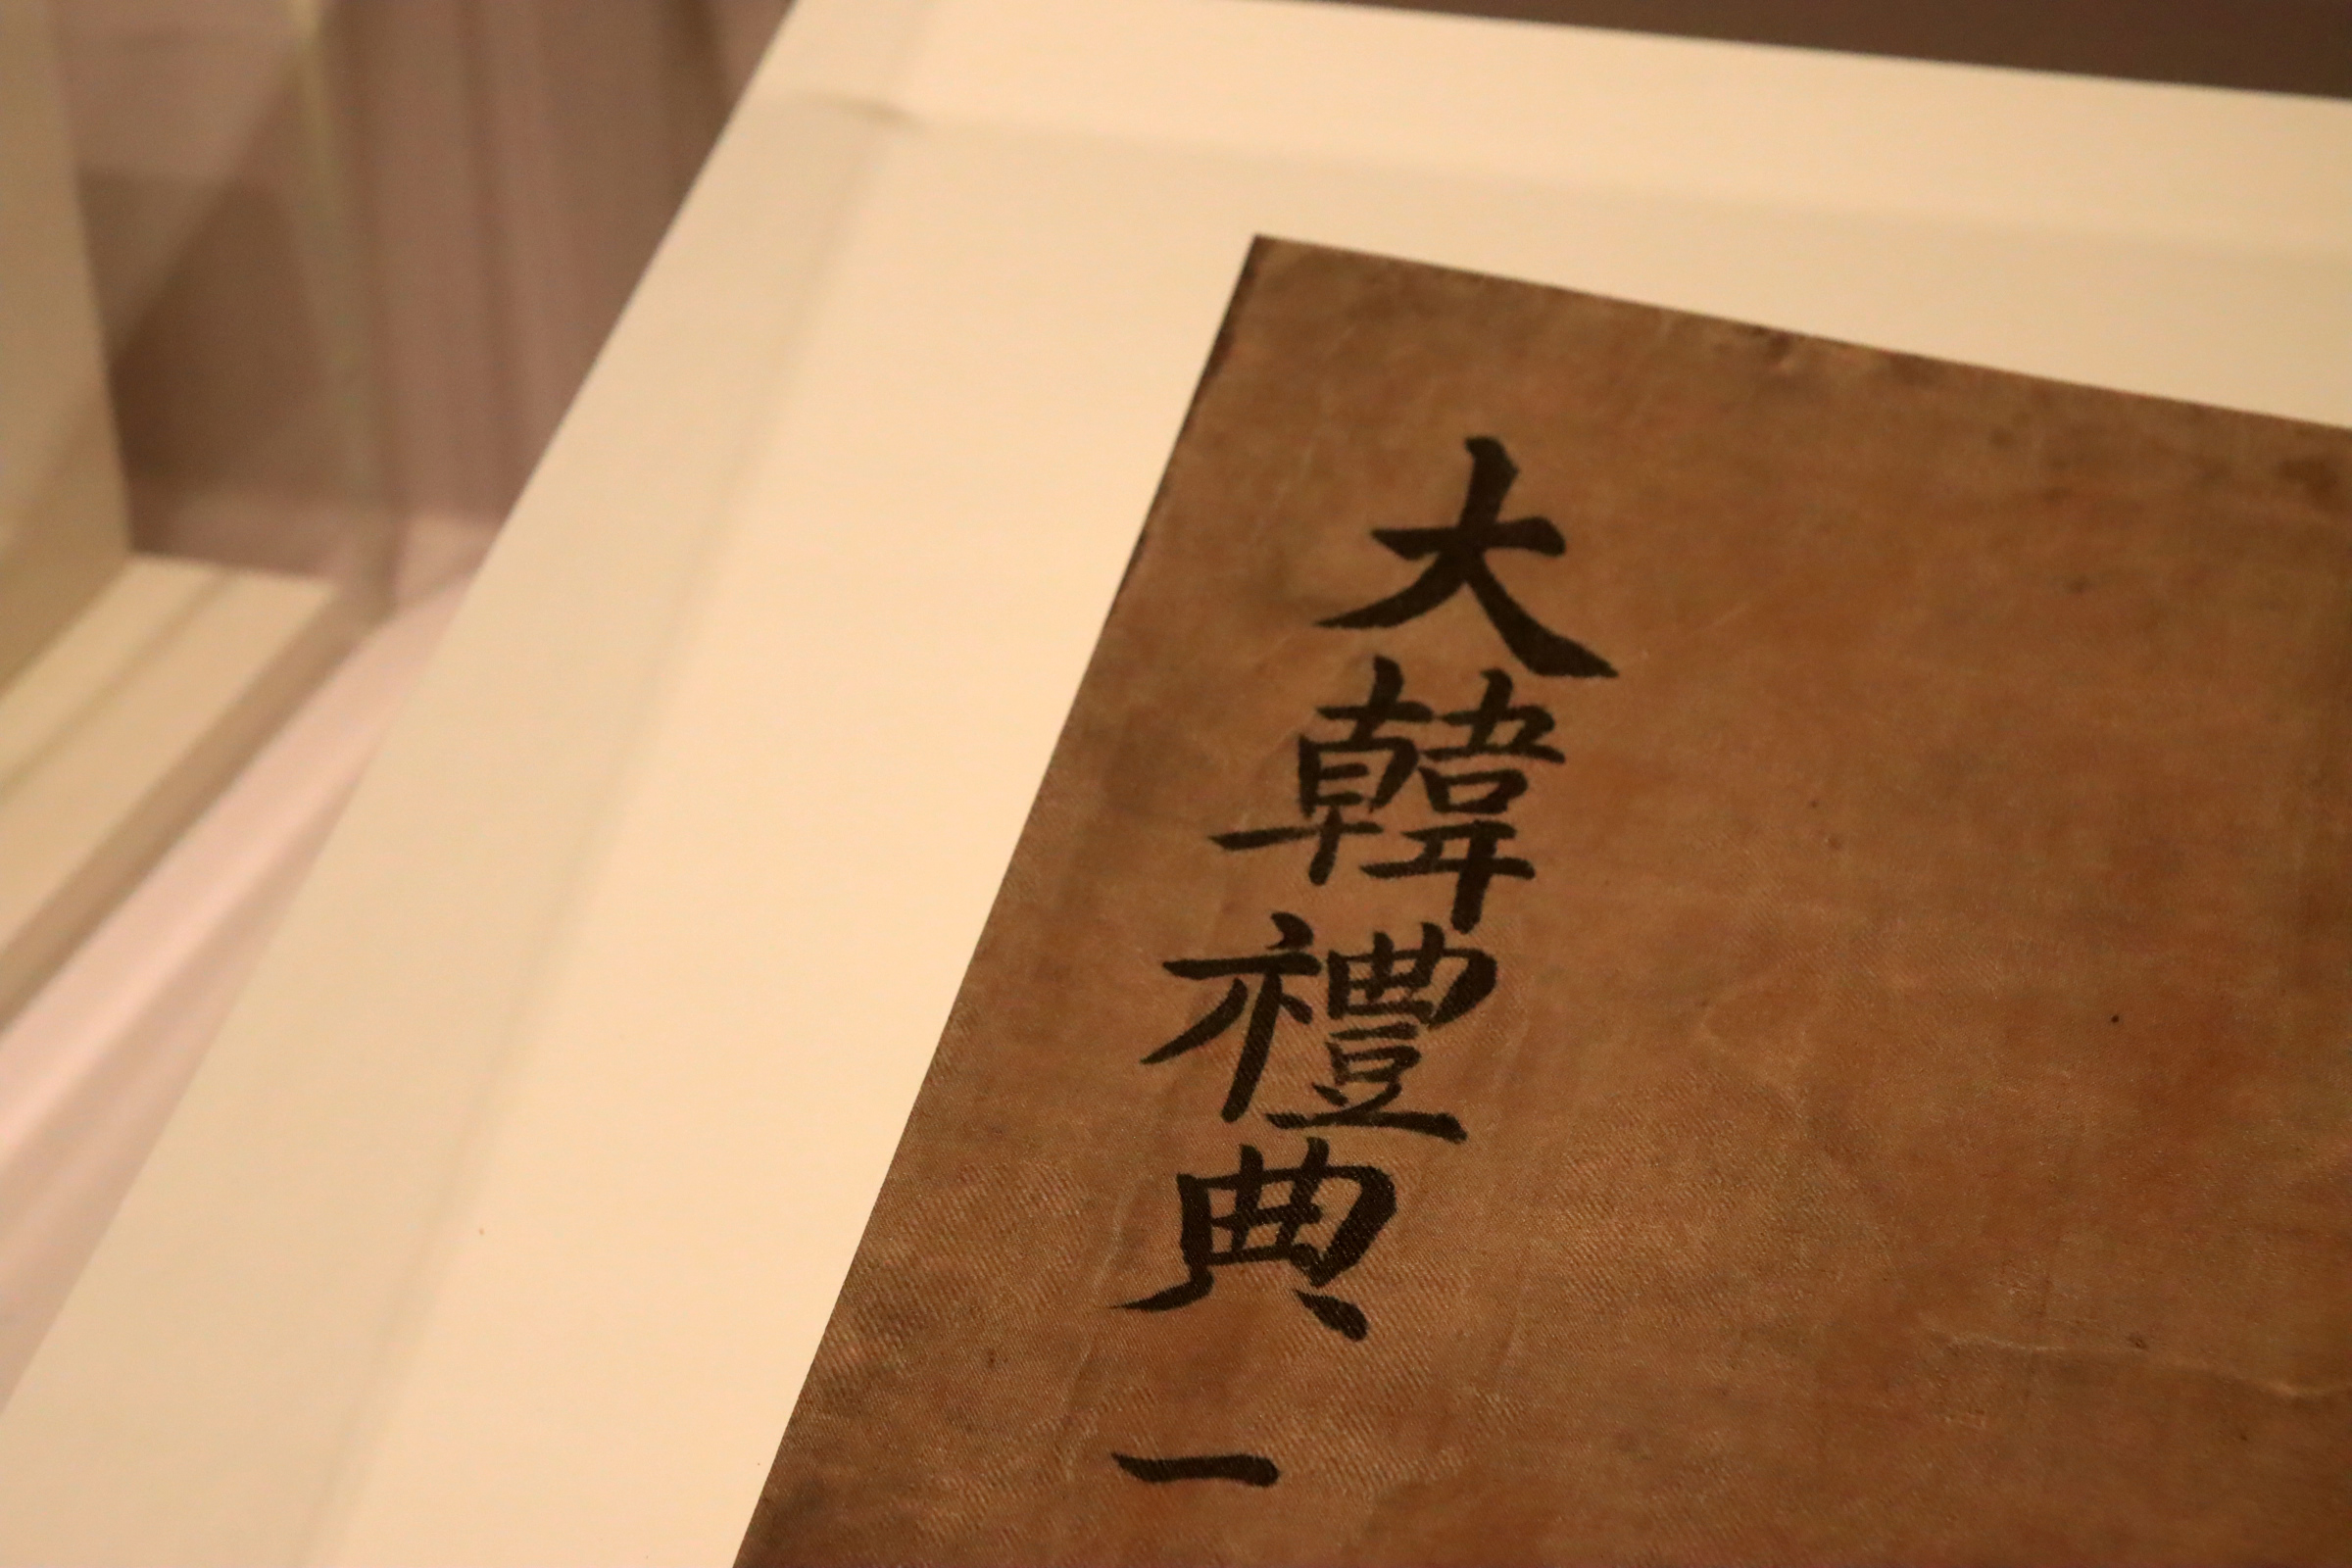 大韓禮典 一